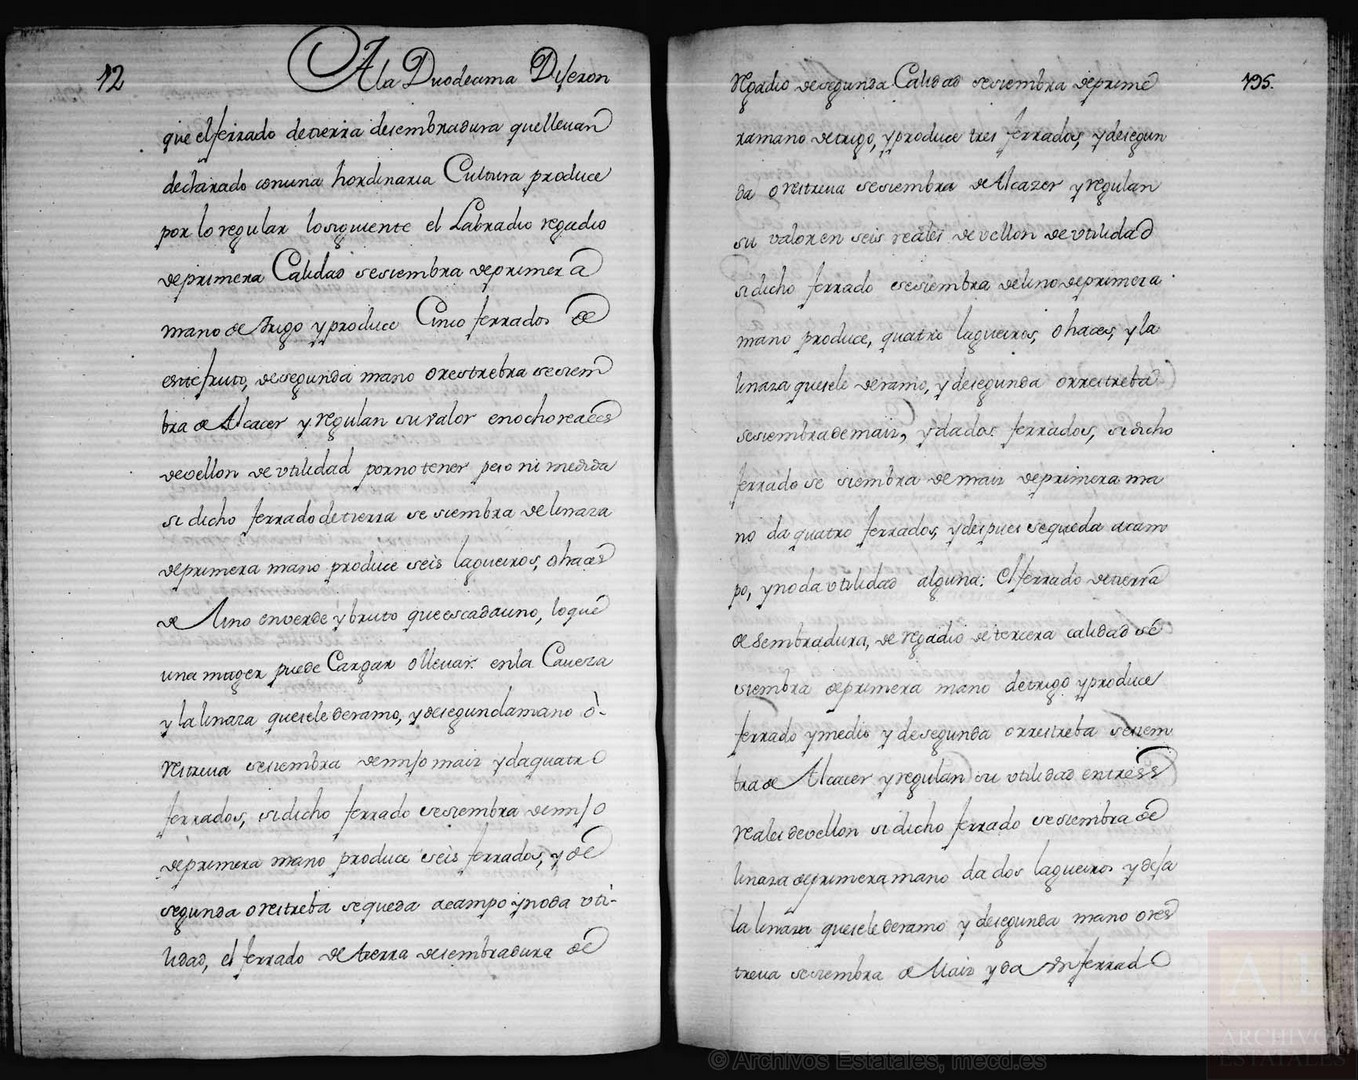 12
A la Duodecima Dijeron
que el ferrado de tierra de sembradura que llevan
declarado con una hordinaria Cultura produce
por lo regular lo siguiente el Labradio regadio
de primera Calidad se siembra de primera
mano de Trigo y produce Cinco ferrados de
este fruto, de segunda mano o restrebra se siem
bra de Alcacer y regulan su valor en ocho reales
de vellon de utilidad por no tener peso ni medida
si dicho ferrado de tierra se siembra de linaza
de primera mano produce seis lagueiros, o haces
de Lino en verde y bruto que es cada uno, lo que
una muger puede Cargar o llevar en la Caveza
y la linaza que se le derramo, y de segunda mano ò
restreva se siembra de mijo maiz y da quatro
ferrados, si dicho ferrado se siembra de mijo
de primera mano produce seis ferrados, y de
segunda o restreba se queda a campo y no da uti-
lidad, el ferrado de tierra de sembradura de
195.
regadio de segunda Calidad se siembra de prime
ra mano de trigo, y produce tres ferrados, y de segun
da o restreva se siembra de Alcazer y regulan
su valor en seis reales de vellon de utilidad
si dicho ferrado se siembra de lino de primera
mano produce, quatro lagueiros, o haces, y la
linaza que se le derramo, y de segunda o restreba
se siembra de maiz, y da dos ferrados, si dicho
ferrado se siembra de maiz de primera ma
no da quatro ferrados, y despues se queda a cam
po, y no da utilidad alguna: el ferrado de tierra
de sembradura, de regadio de tercera calidad se
siembra de primera mano de trigo y produce
ferrado y medio y de segunda o restreba se siem
bra de Alcacer y regulan su utilidad en tres
reales de vellon si dicho ferrado se siembra de
linaza de primera mano da dos lagueiros y deja
la linaza que se le derramo y de segunda mano o res
treva se siembra de Maiz y da un ferrado
© Archivos Estatales, mecd.es
AE
ARCHIVOS
ESTATALES